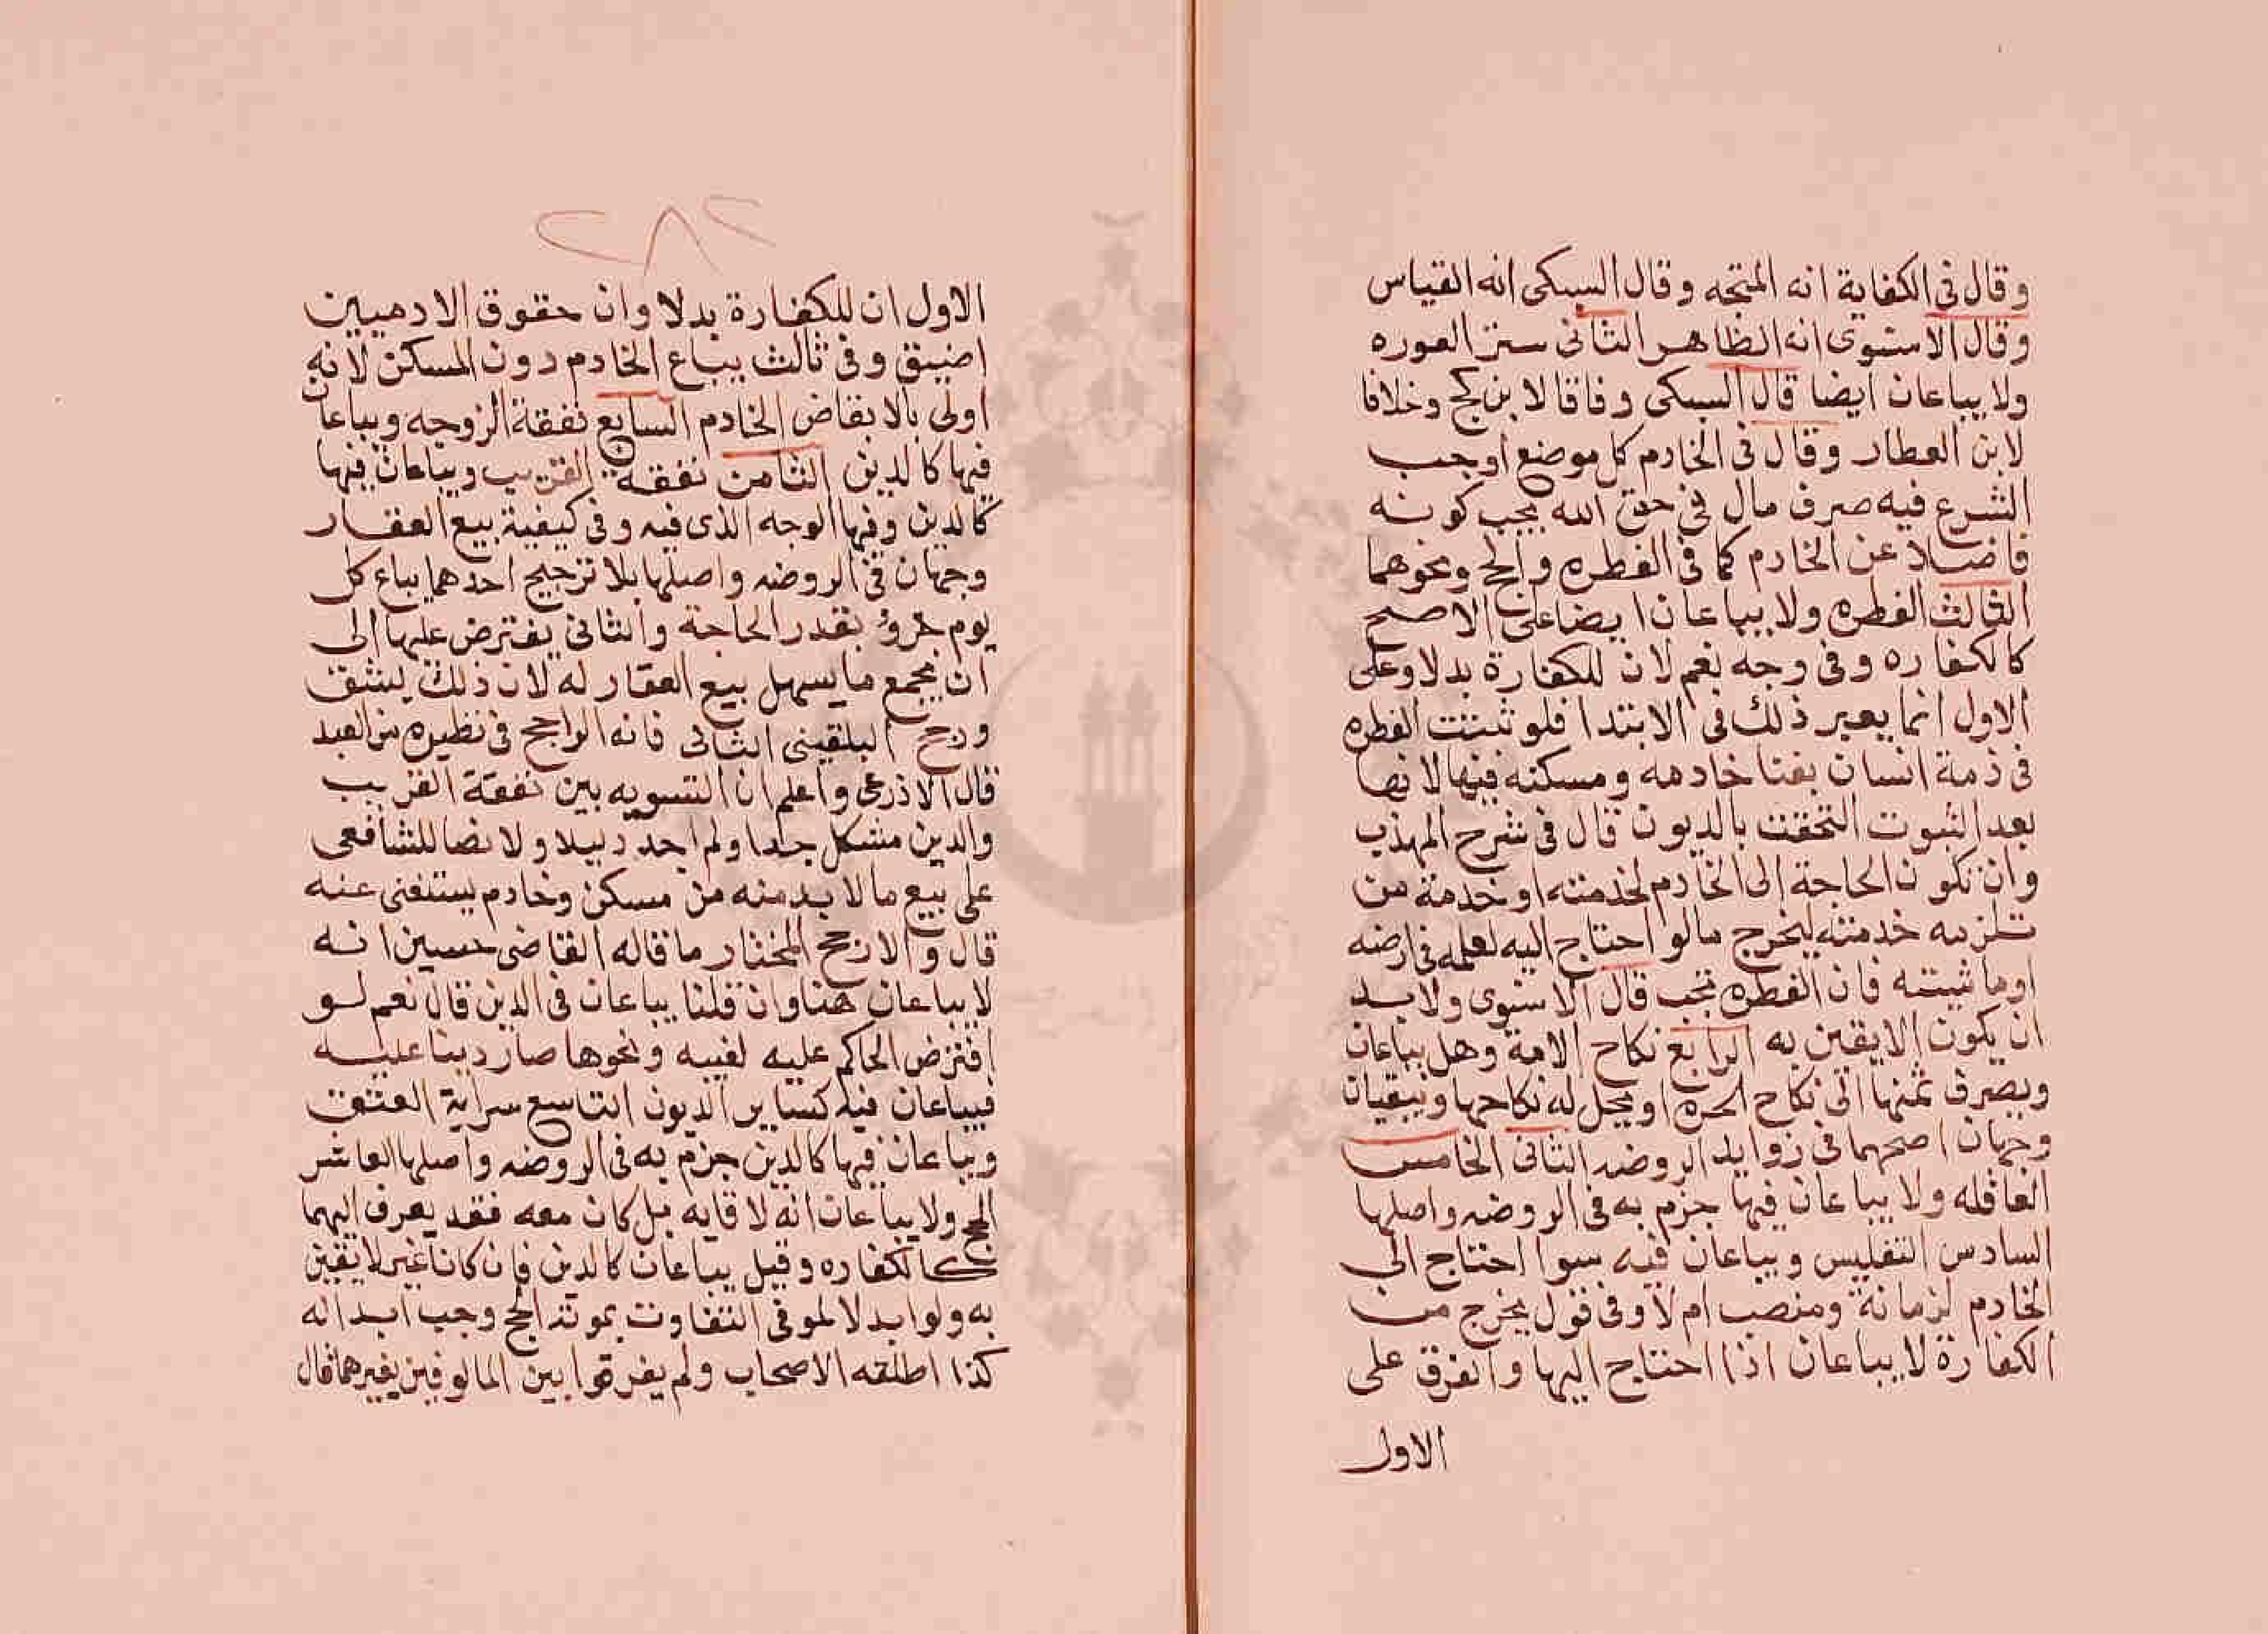 وقال في الكفاية انه المتجه وقال السبكى انه القياس
وقال الاسنوى انه الظاهر الثانى ستر العوره
ولا يباعان ايضا قال السبكى وفاقا لابن كج وخلافا
لابن العطار وقال فى الخادم كل موضع اوجب
الشرع فيه صرف مال في حق الله يجب كونه
فاضلا عن الخادم كما فى الفطره والحج ونحوهما
الثالث الفطره ولا يباعان ايضا على الاصح
كالكفاره وفى وجه نعم لان للكفارة بدلا وعلى
الاول انما يعبر ذلك فى الابتدا فلو ثبتت الفطره
فى ذمة انسان بعنا خادمه ومسكنه فيها لانها
بعد الثبوت التحقت بالديون قال فى شرح المهذب
وان تكون الحاجة الى الخادم لخدمته او خدمة من
تلزمه خدمته ليخرج مالو احتاج اليه لعمله فى ارضه
او ماشيته فان الفطره تجب قال الاسنوى ولابد
ان يكون الايقين به الرابع نكاح الامة وهل يباعان
ويصرف ثمنها الى نكاح الحره او يحل له نكاحها ويبقيان
وجهان اصحهما فى زوايد الروضه الثانى الخامس
العاقله ولا يباعان فيها جزم به فى الروضه واصلها
السادس التفليس ويباعان فيه سوا احتاج الى
الخادم لزمانة ومنصب ام لا وفى قول يخرج من
الكفارة لا يباعان اذا احتاج اليها والفرق على
الاول
٢٨٢
الاول ان للكفارة بدلا وان حقوق الادميين
اضيق وفى ثالث يباع الخادم دون المسكن لانه
اولى بالابقاض الخادم السابع نفقة الزوجه ويباعان
فيها كالدين الثامن نفقة القريب ويباعان فيها
كالدين وفيها الوجه الذى فيه وفى كيفية بيع العقار
وجهان في الروضه واصلها بلا ترجيح احدهما يباع كل
يوم جزؤ بقدر الحاجة والثاني يفترض عليها الى
ان يجمع ما يسهل بيع العقار له لان ذلك يشق
ورجح البلقينى الثانى فانه الراجح فى نظيره من العبد
قال الاذرعى واعلم ان التسويه بين نفقة القريب
والدين مشكل جدا ولم اجد دليلا ولا نصا للشافعى
على بيع مالا بد منه من مسكن وخادم يستغنى عنه
قال والارجح المختار ما قاله القاضى حسين انه
لا يباعان هنا وان قلنا يباعان فى الدين قال نعم لو
اقترض الحاكم عليه لغيبه ونحوها صار دينا عليه
فيباعان فيه كساير الديون التاسع سراية العتق
ويباعان فيها كالدين جزم به فى الروضه واصلها العاشر
الحج ولا يباعان انه لا قايه بل كان معه فقد يصرف اليهما
كالكفاره وقيل يباعان كالدين فان كانا غير لا يقين
به ولو ابدلا لموفى التفاوت بمونة الحج وجب ابداله
كذا اطلقه الاصحاب ولم يفرقوا بين المالوفين بغيرهما قال